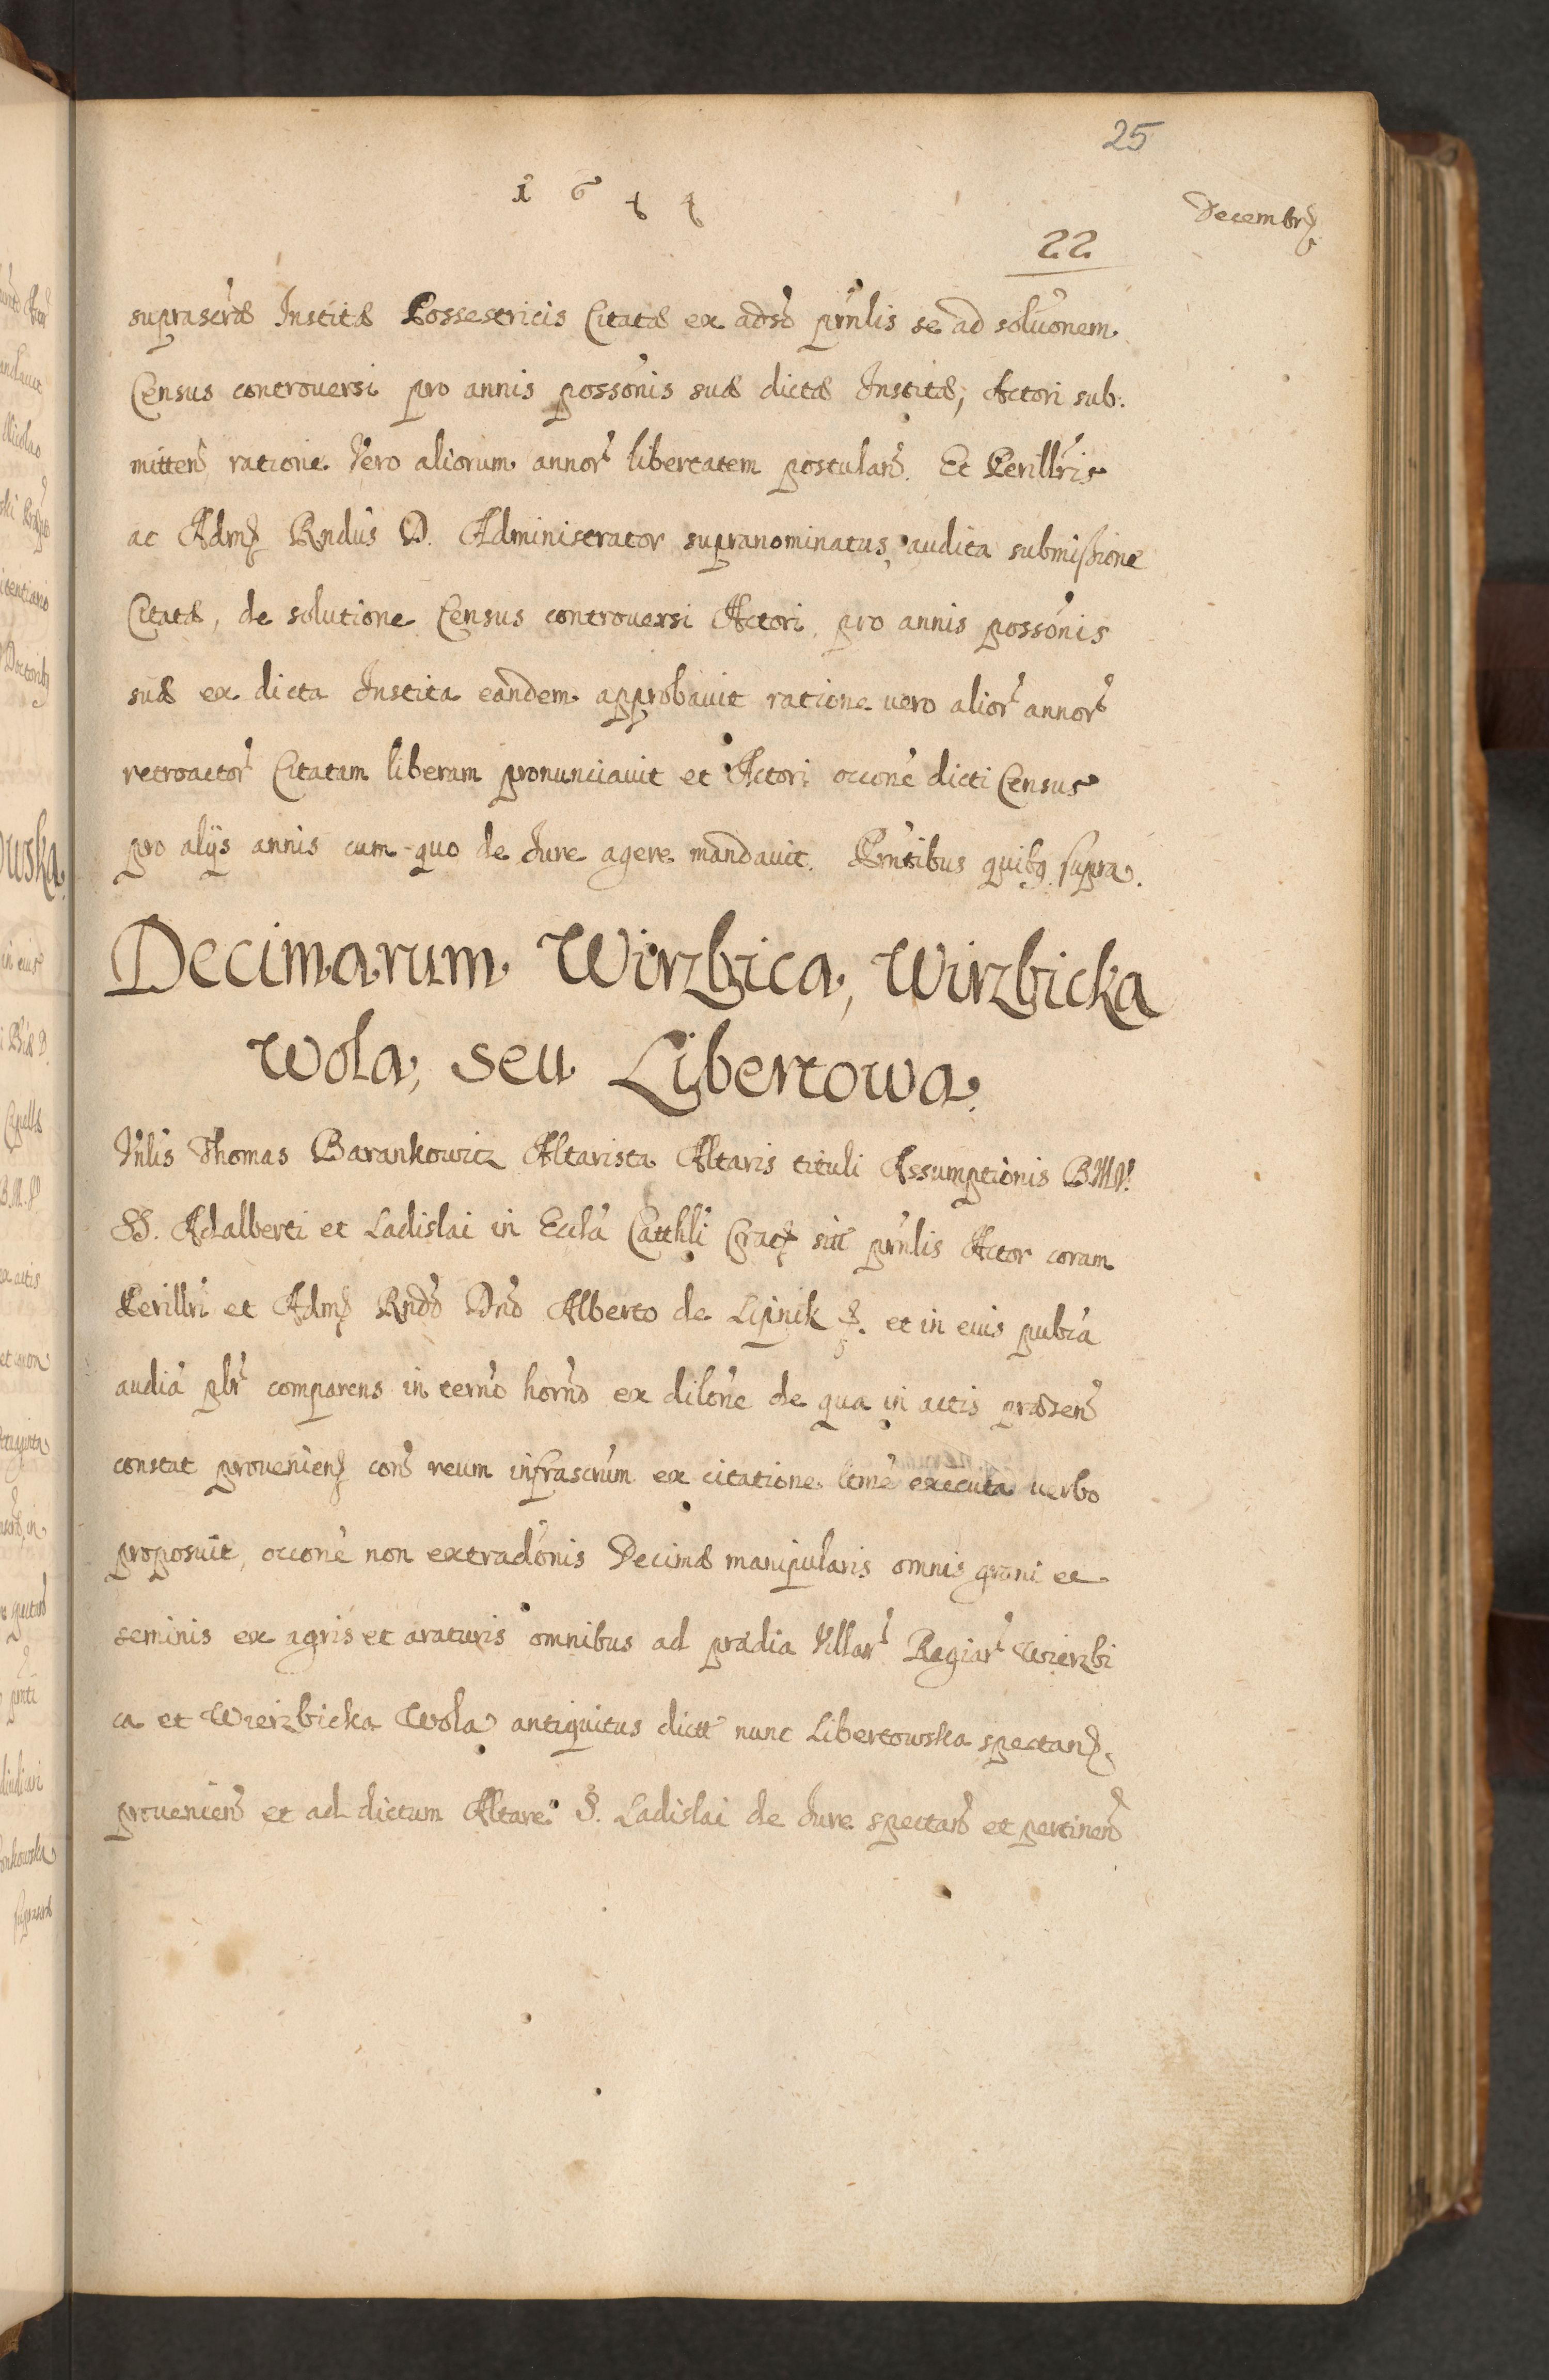 25
1 6 4 4
Decembr
22
suprascrae Institae Possestricis Citatae ex adso prnlis se ad soluonem
Census controuersi pro annis possonis suae dictae Institae, Actori sub:
mittens ratione Vero aliorum annor libertatem postulans. Et Perillris
ac Adm Rndus D. Administrator supranominatus, audita submissione
Citatae, de solutione Census controuersi Actori pro annis possonis
suae ex dicta Instita eandem approbauit ratione uero alior annor
retroactor Citatam liberam pronunciauit et Actori occone dicti Census
pro alijs annis cum quo de Jure agere mandauit. Prntibus quibq supra.
Decimarum Wirzbica, Wirzbicka
Wola, seu Libertowa.
Vnlis Thomas Barankowicz Altarista Altaris tituli Assumptionis BMV.
SS. Adalberti et Ladislai in Eccla Catthli Crac sit prnlis Actor coram
Perillri et Adm Rndo Dno Alberto de Lipnik &. et in eius publca
audia pbr comparens in termo horno ex dilone de qua in actis praesens
constat prouenien cons reum infrascrum ex citatione ltme executa uerbo
proposuit, occone non extradonis Decimae manipularis omnis grani et
seminis ex agris et araturis omnibus ad praedia Villar Regiar Wierzbi
ca et Wierzbicka Wola antiquitus dictt nunc Libertowska spectan
proueniens et ad dictum Altare S. Ladislai de Jure spectans et pertinens